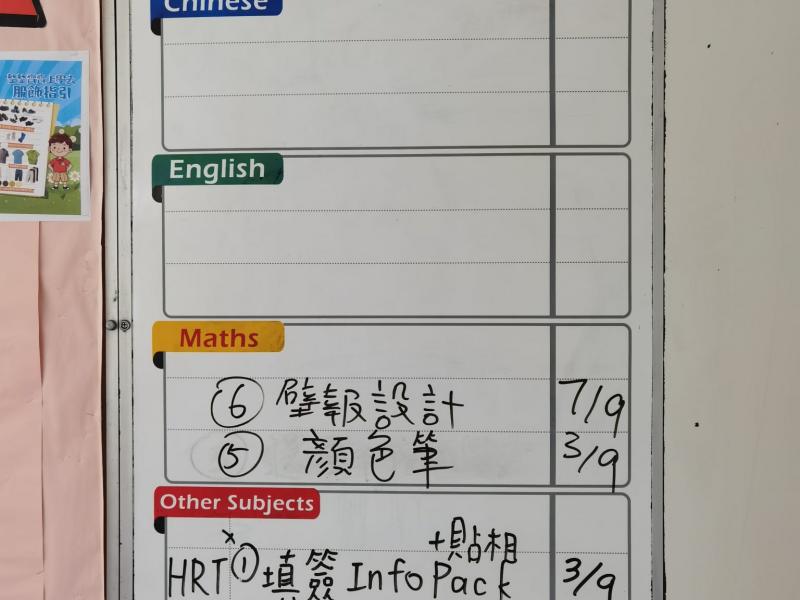 Chinese
服飾指引
English
Maths
⑥ 壁報設計 7/9
⑤ 顏色筆 3/9
Other Subjects
+貼相
HRT ① 填簽 Info Pack 3/9